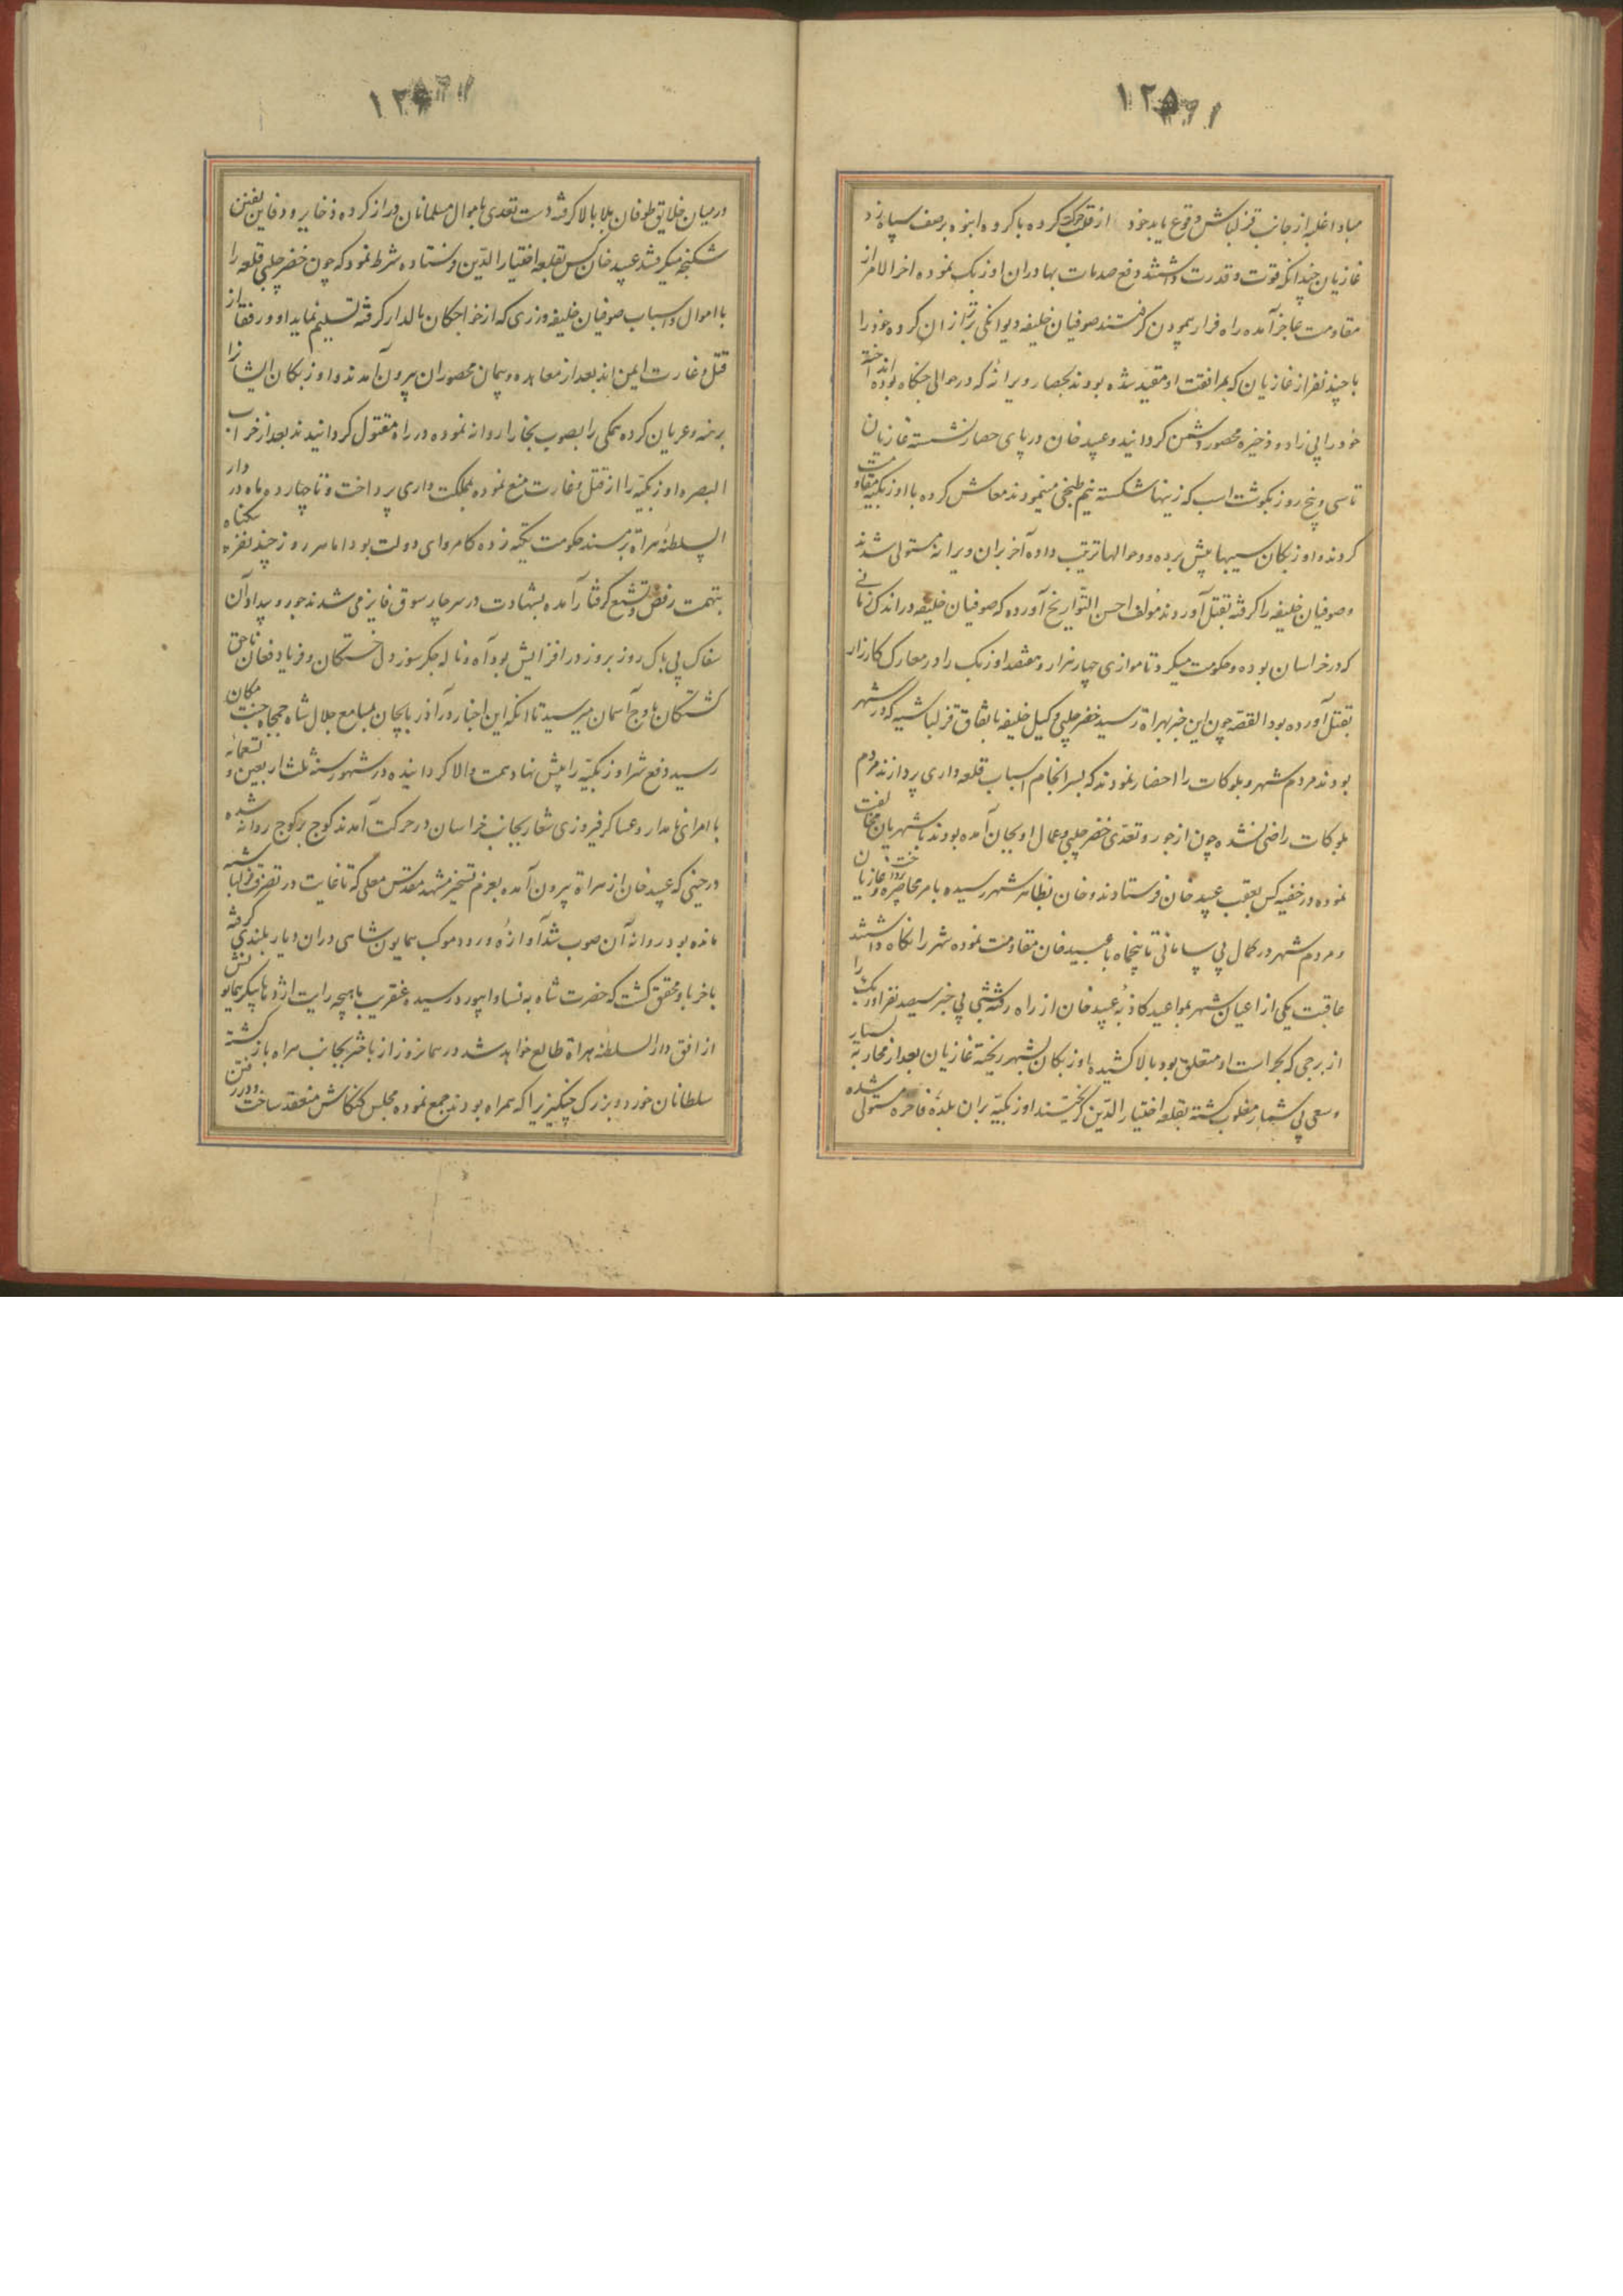 ۱۲۵
مبادا غلبه از جانب قزلباش وقوع یابد خود از قلب حرکت کرده با کروه انبوه بر صف سپاه زد
غازیان چندانکه قوت و قدرت داشتند دفع صدمات بهادران اوزبک نموده اخر الامر از
مقاومت عاجز آمده راه فرار پیمودن کرفتند صوفیان خلیفه دیوانکی زیاد از ان کروه خود را
با چند نفر از غازیان که بمرافقت او مقید شده بودند بحصار ویرانه که در حوالی جنکاه بوده انداخته
خود را بی زاد و ذخیره محصور دشمن کردانید و عبید خان در پای حصار نشسته غازیان
تا سی و پنج روز بکوشت اسب که زینها شکسته نیم طبخی مینمودند معاش کرده با اوزبکیه مقاومت
کردند و اوزبکان سیبها پیش برده و حوالها ترتیب داده آخر بران ویرانه مستولی شدند
و صوفیان خلیفه را کرفته بقتل آوردند مؤلف احسن التواریخ آورده که صوفیان خلیفه در اندک زمانی
که در خراسان بوده و حکومت میکرد تا موازی چهار هزار و هفتصد اوزبک را در معارک کارزار
بقتل آورده بود القصه چون این خبر بهراة رسید خضر چلبی وکیل خلیفه باتفاق قزلباشیه که در شهر
بودند مردم شهر و بلوکات را احضار نمودند که بسرانجام اسباب قلعه داری پردازند مردم
بلوکات راضی نشده چون از جور و تعدی خضر چلبی و عمال او بجان آمده بودند با شهریان مخالفت
نموده در خفیه کس بعقب عبید خان فرستادند و خان بظاهر شهر رسیده بامر محاصره پرداخت و غازیان
و مردم شهر در کمال بی سامانی تا پنجماه با عبید خان مقاومت نموده شهر را نکاه داشتند
عاقبت یکی از اعیان شهر بمواعید کاذبهٔ عبید خان از راه رفته شبی بی خبر سیصد نفر اوزبک را
از برجی که بحراست او متعلق بود بالا کشیده اوزبکان بشهر ریخته غازیان بعد از محاربهٔ بسیار
و سعی بی شمار مغلوب کشته بقلعه اختیار الدین کریختند اوزبکیه بران بلدهٔ فاخره مستولی شده
۱۲۶
در میان خلایق طوفان بلا بالا کرفته دست تعدی باموال مسلمانان دراز کرده ذخایر و دفاین
شکنجه میکرفتند عبید خان کس بقلعه اختیار الدین فرستاده شرط نمود که چون خضر چلبی قلعه را
با اموال و اسباب صوفیان خلیفه و زری که از خواجکان مالدار کرفته تسلیم نماید او و رفقا از
قتل و غارت ایمن اند بعد از معاهده و پیمان محصوران بیرون آمدند و اوزبکان ایشان را
برهنه و عریان کرده همکی را بصوب بخارا روانه نموده در راه مقتول کردانیدند بعد از خراب
البصره اوزبکیه را از قتل و غارت منع نموده بمملکت داری پرداخت و تا چهارده ماه در دار
السلطنهٔ هراة بر مسند حکومت تکیه زده کامروای دولت بود اما هر روز چند نفر بیکناه
بتهمت رفض و تشیع کرفتار آمده بشهادت در سر چارسوق فایز می شدند جور و بیداد آن
سفاک بی باک روز بروز در افزایش بود آه و ناله جکر سوز دل خستکان و فریاد و فغان ناحق
کشتکان باوج آسمان میرسید تا انکه این اخبار در آذربایجان بمسامع جلال شاه جمجاه جنت مکان
رسید دفع شر اوزبکیه را پیش نهاد همت والا کردانیده در شهور سنهٔ ثلث اربعین و تسعمائه
با امرای نامدار و عساکر فیروزی شعار بجانب خراسان در حرکت آمدند کوچ بر کوچ روانه شده
در حینی که عبید خان از هراة بیرون آمده بعزم تسخیر مشهد مقدس معلی که تا غایت در تصرف قزلباشیه
مانده بود روانهٔ آن صوب شد آوازهٔ ورود موکب همایون شاهی دران دیار بلندی کرفته
با خر با و محقق کشت که حضرت شاه به نسا و ابیورد رسیده عنقریب ماهیچه رایت اژدها پیکر همایونش
از افق دار السلطنهٔ هراة طالع خواهد شد در همانروز از باخرز بجانب هراه بازکشته
سلطانان خورد و بزرک چنکیزی را که همراه بودند جمع نموده مجلس کنکاش منعقد ساخت و در رفتن